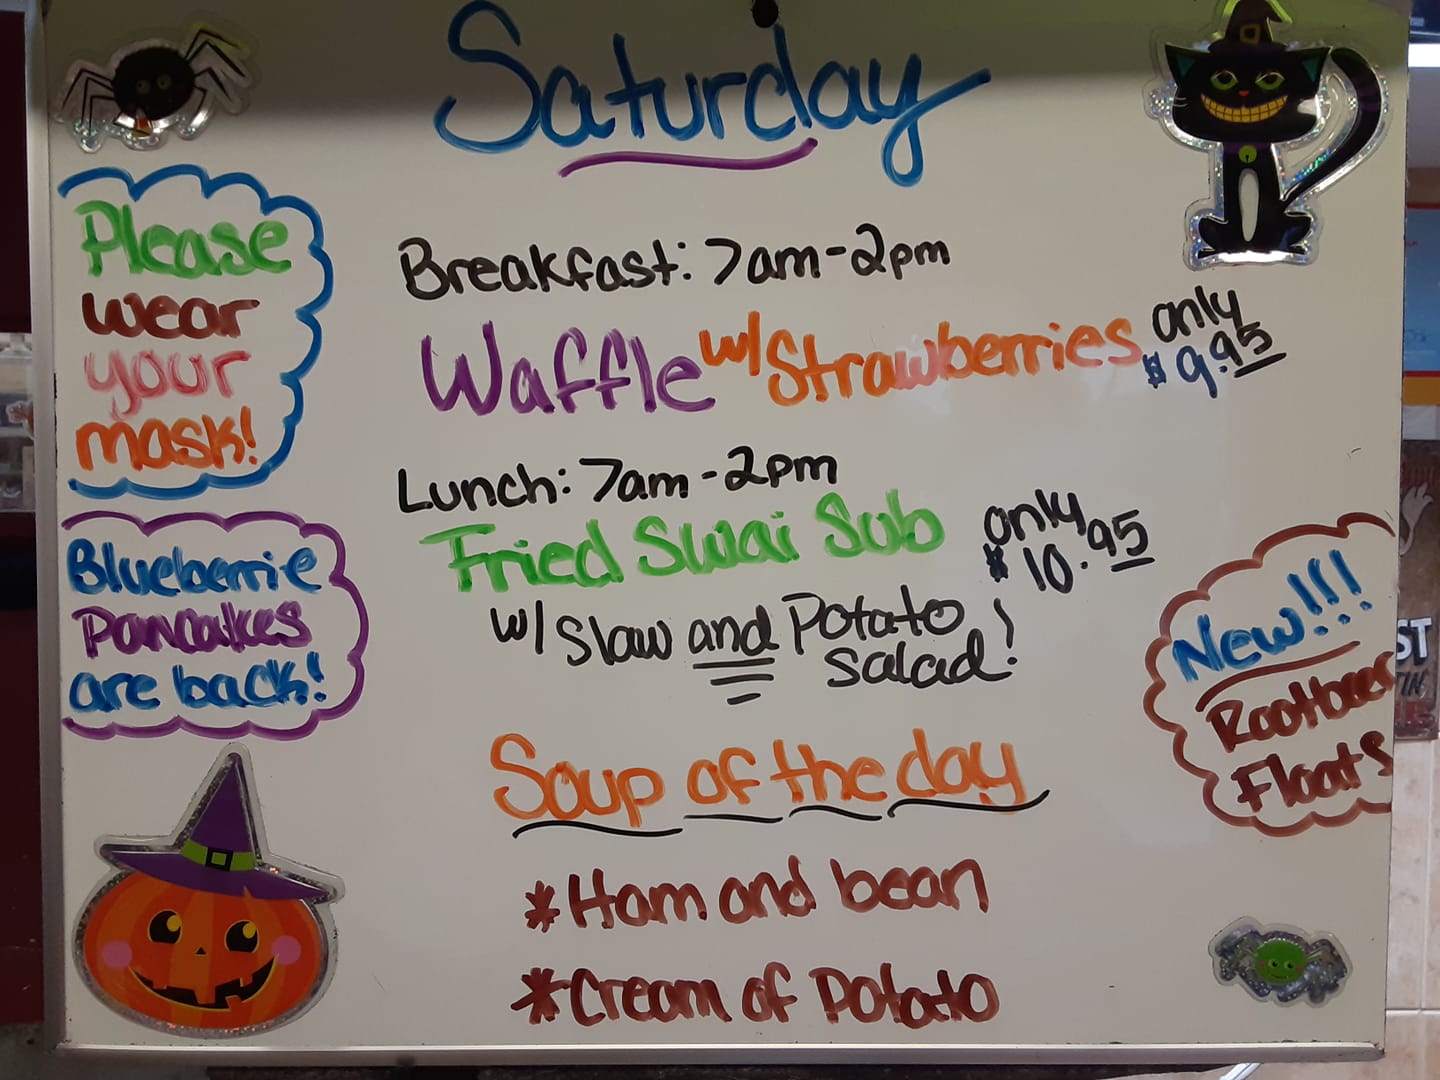 Saturday
Please
wear
your
mask!
Blueberrie
Pancakes
are back!
Breakfast: 7am-2pm
Waffle w/ Strawberries only
$9.95
Lunch: 7am-2pm
Fried Swai Sub only
$10.95
w/ Slaw and Potato
salad!
Soup of the day
*Ham and bean
*Cream of Potato
New!!!
Rootbeer
Floats
ST